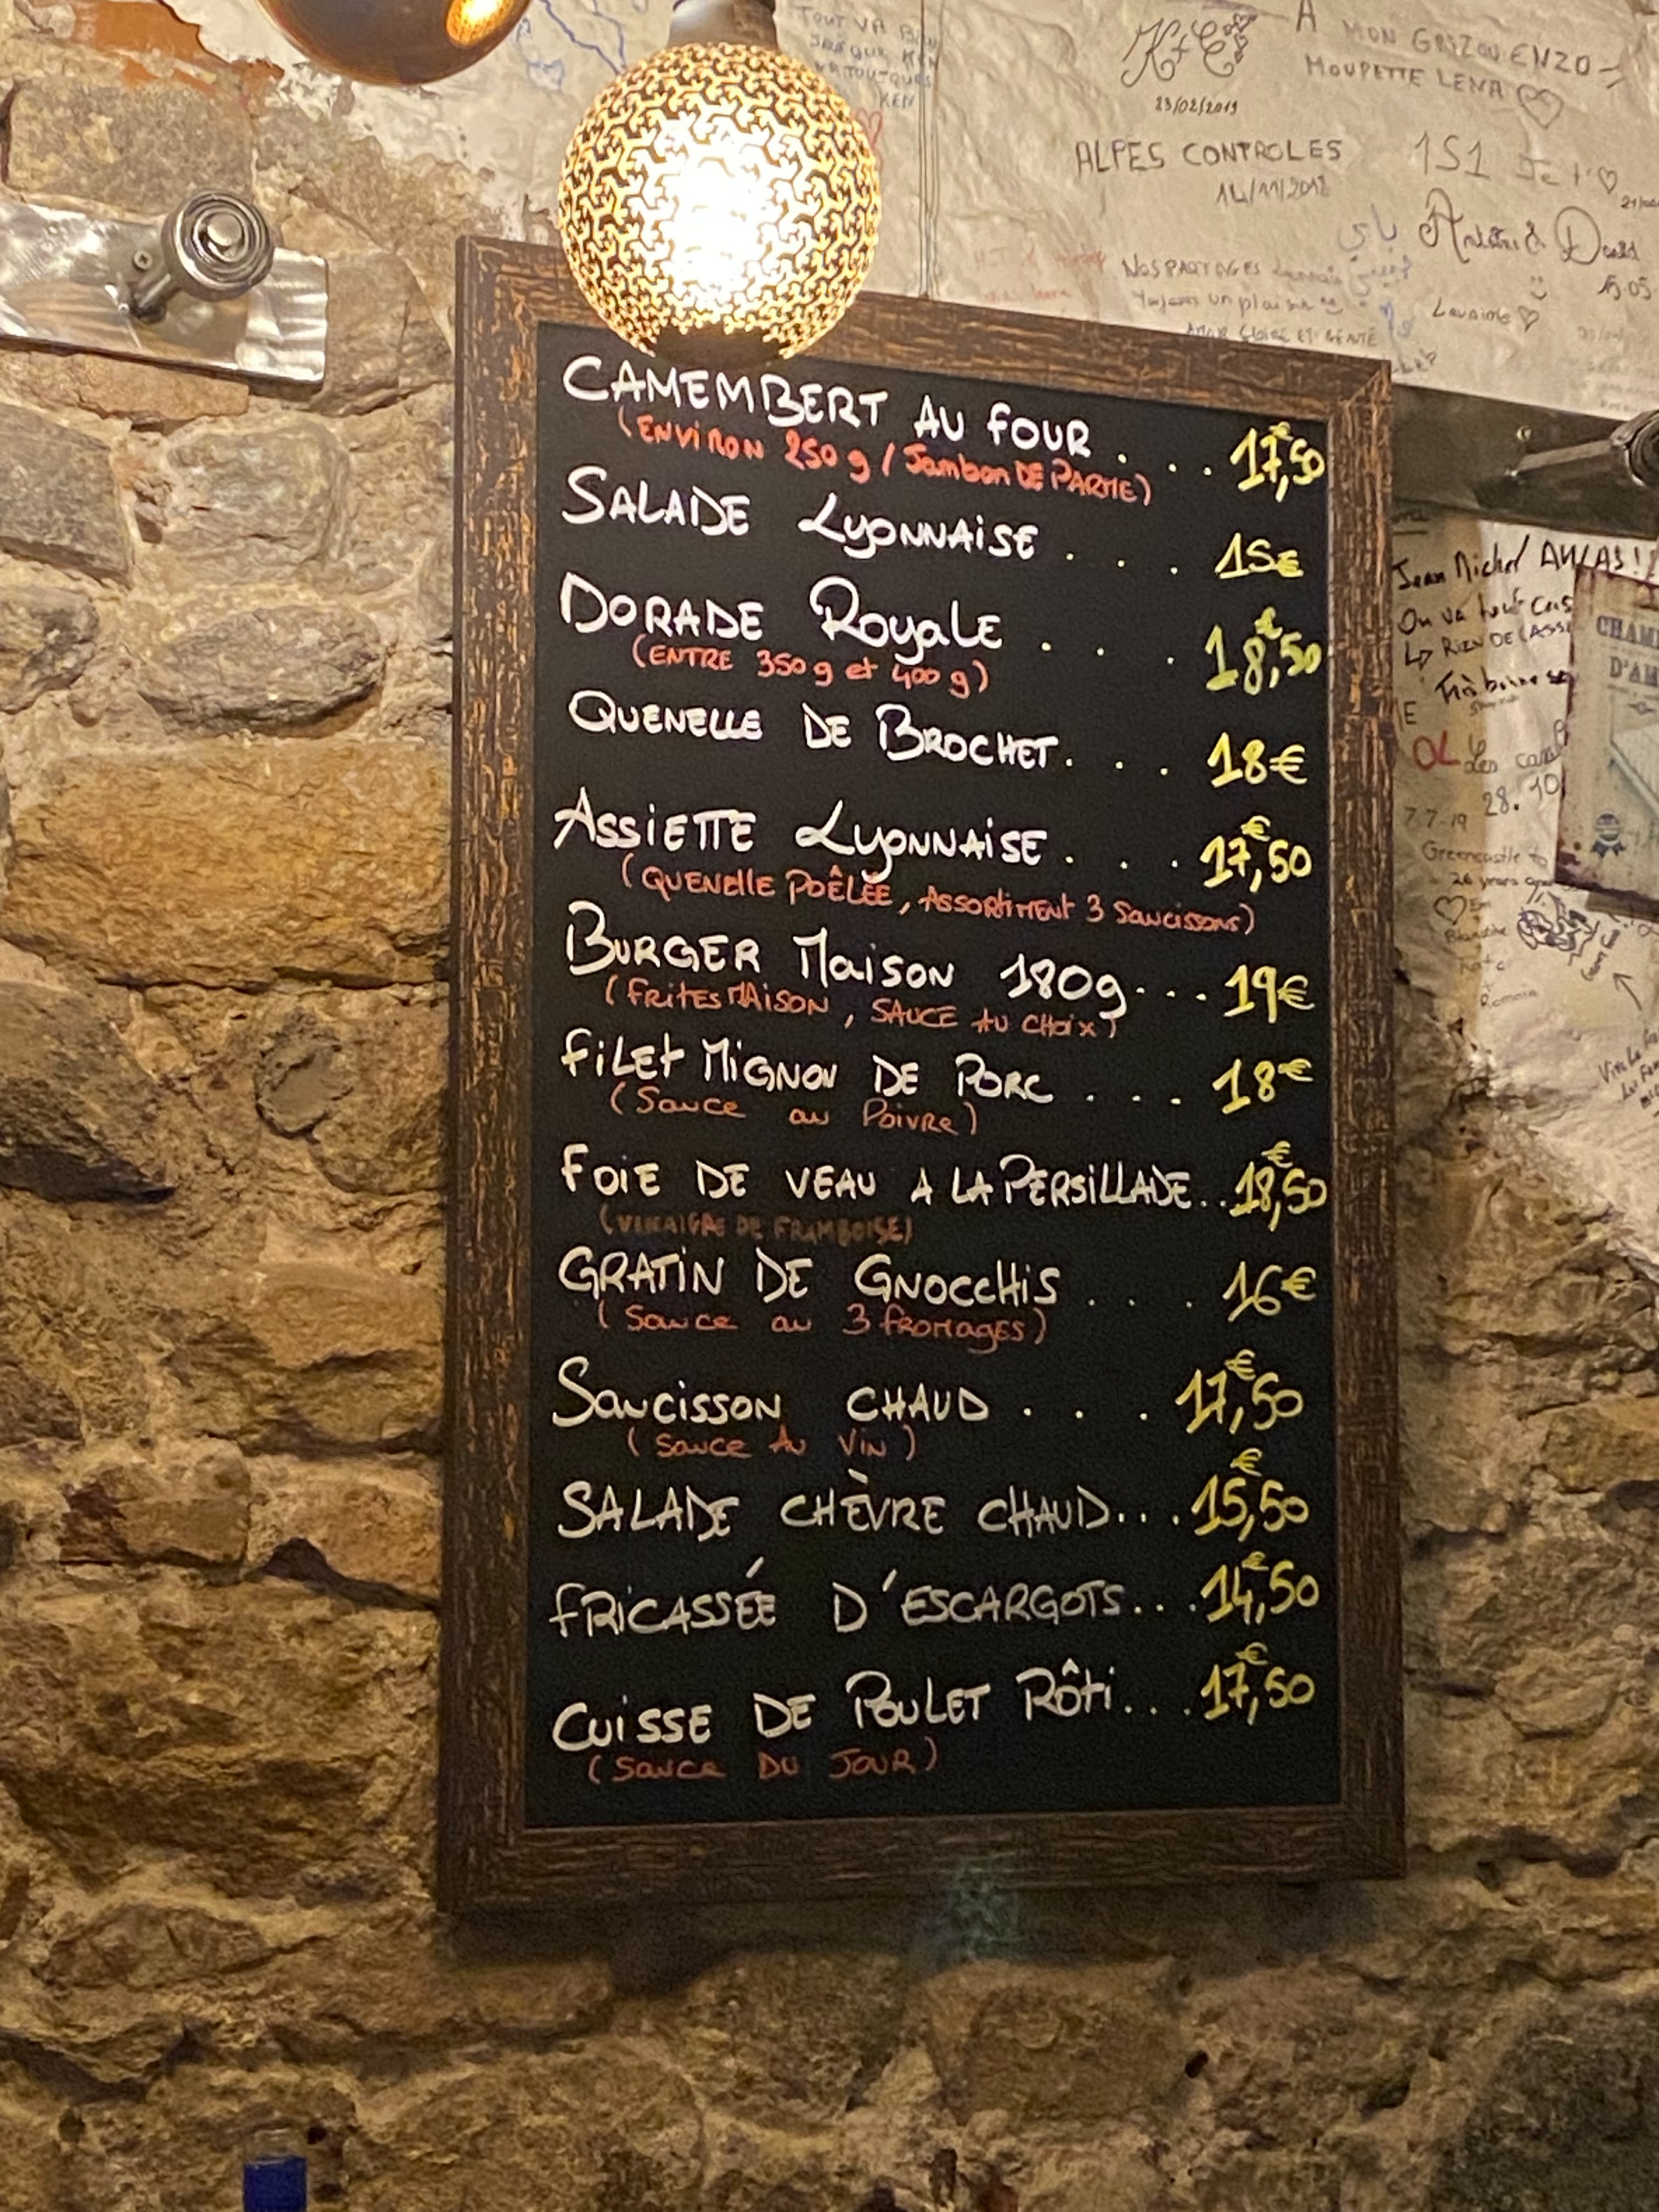 TOUT VA BIEN
K + E
23/02/2019
A MON GRIZOU ENZO
MOUPETTE LENA
ALPES CONTROLES
14/11/2018
1S1
NOS PARTAGES
Toujours un plaisir
CAMEMBERT AU FOUR . . . 17€,50
(ENVIRON 250 g / Jambon DE PARME)
SALADE LyONNAiSE . . . 15€
DORADE RoyaLE . . . 18€,50
(ENTRE 350 g et 400 g)
QUENELLE DE BROCHET. . . 18€
AssiETTE LyONNAiSE . . . 17€,50
(QUENElle POÊLÉE, ASSORtiMENt 3 Saucissons)
BURGER MaisoN 180g... 19€
(FRitES MAiSON, SAUCE AU CHOiX)
FiLEt MiGNON DE PORC . . . 18€
(Sauce au PoivRe)
FoiE DE VEAU A LA PERSiLLADE.. 18€,50
(VINAIGRE DE FRAMBOISE)
GRATiN DE GNOCCHiS . . . 16€
(Sauce au 3 fROMAgES)
Saucisson CHAUD . . . 17€,50
(Sauce Au ViN)
SALADE CHÈVRE CHAUD... 15€,50
FRiCASSÉE D'ESCARGOTS... 14€,50
CUiSSE DE POULET RÔti... 17€,50
(Sauce DU JOUR)
Jean Michel AULAS !
On va tout
RIEN
OL
28.10
7-7-19
Greencastle
26 years
Romain
CHAM
D'A